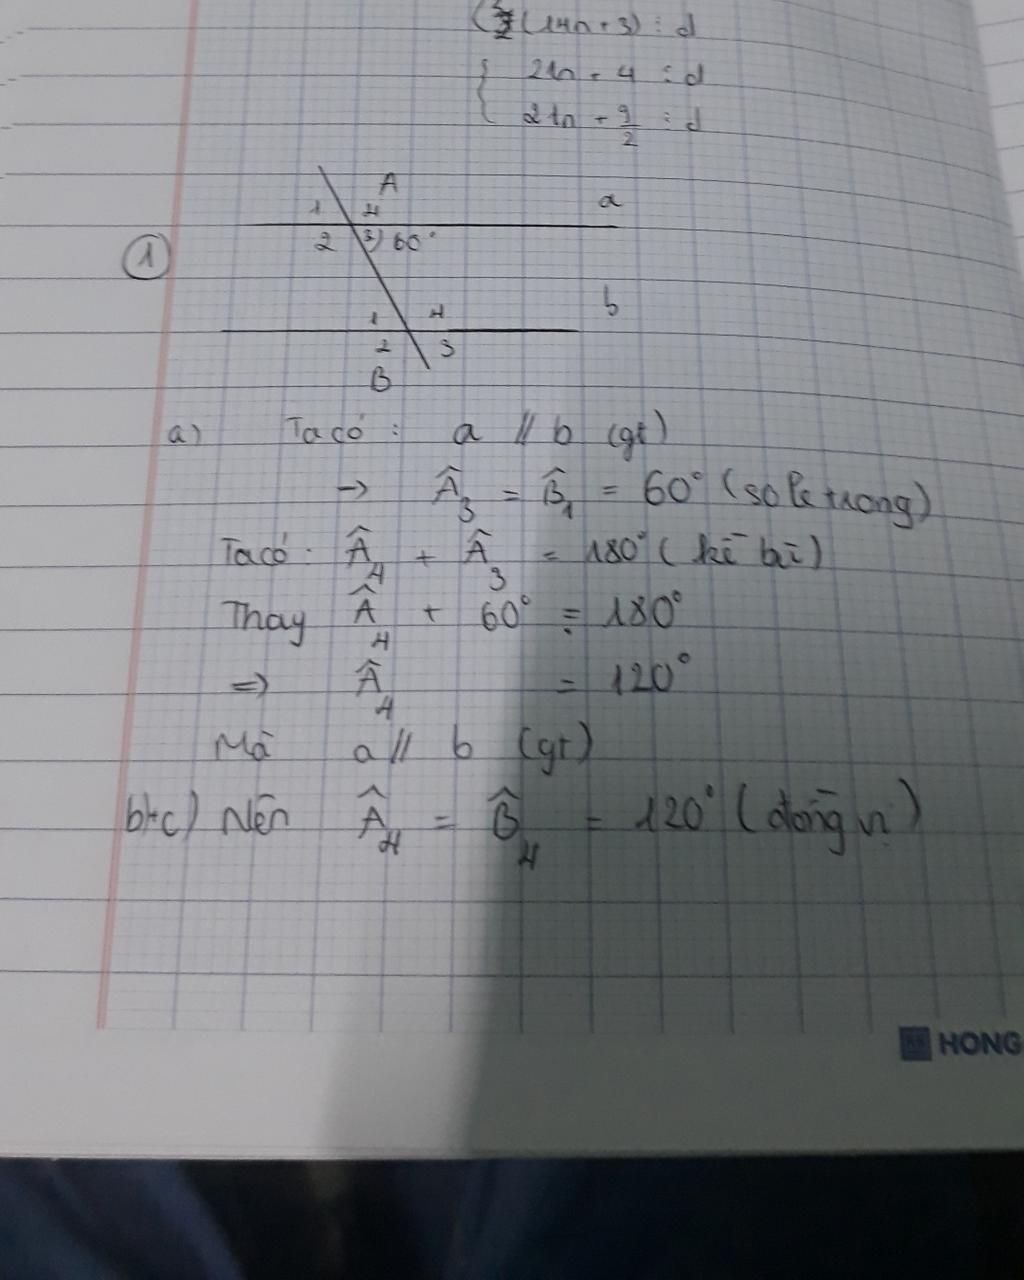 (14n + 3) ⋮ d
21n + 4 ⋮ d
21n + 9/2 ⋮ d
A
1 4 a
① 2 3) 60°
1 4 b
2 3
B
a) Ta có : a // b (gt)
→ Â₃ = B̂₁ = 60° (so le trong)
Ta có : Â₄ + Â₃ = 180° ( kề bù )
Thay Â₄ + 60° = 180°
⇒ Â₄ = 120°
Mà a // b (gt)
b+c) Nên Â₄ = B̂₄ = 120° ( đồng vị )
HONG